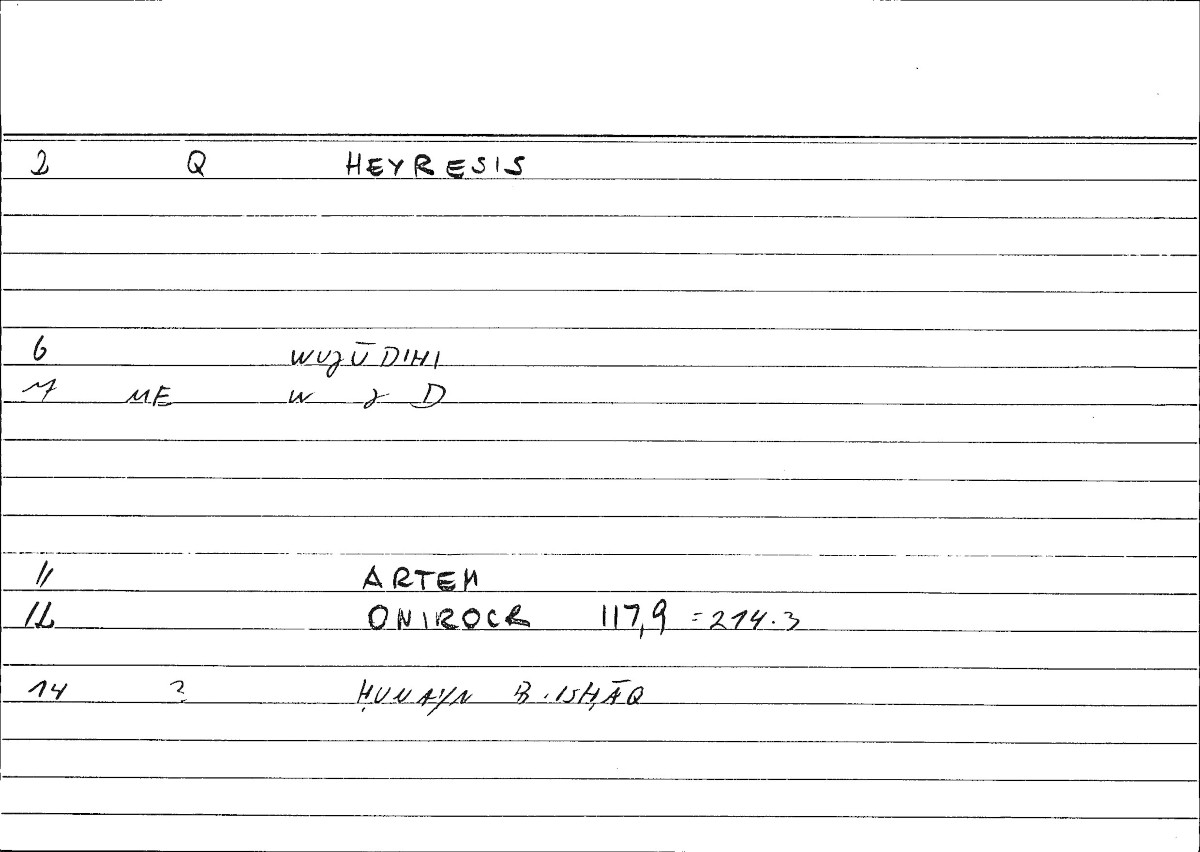 2 Q HEYRESIS
6 WUJŪDIHI
7 ME W J D
11 ARTEM
12 ONIROCR 117,9 = 214.3
14 2 ḤUNAYN B. ISḤĀQ